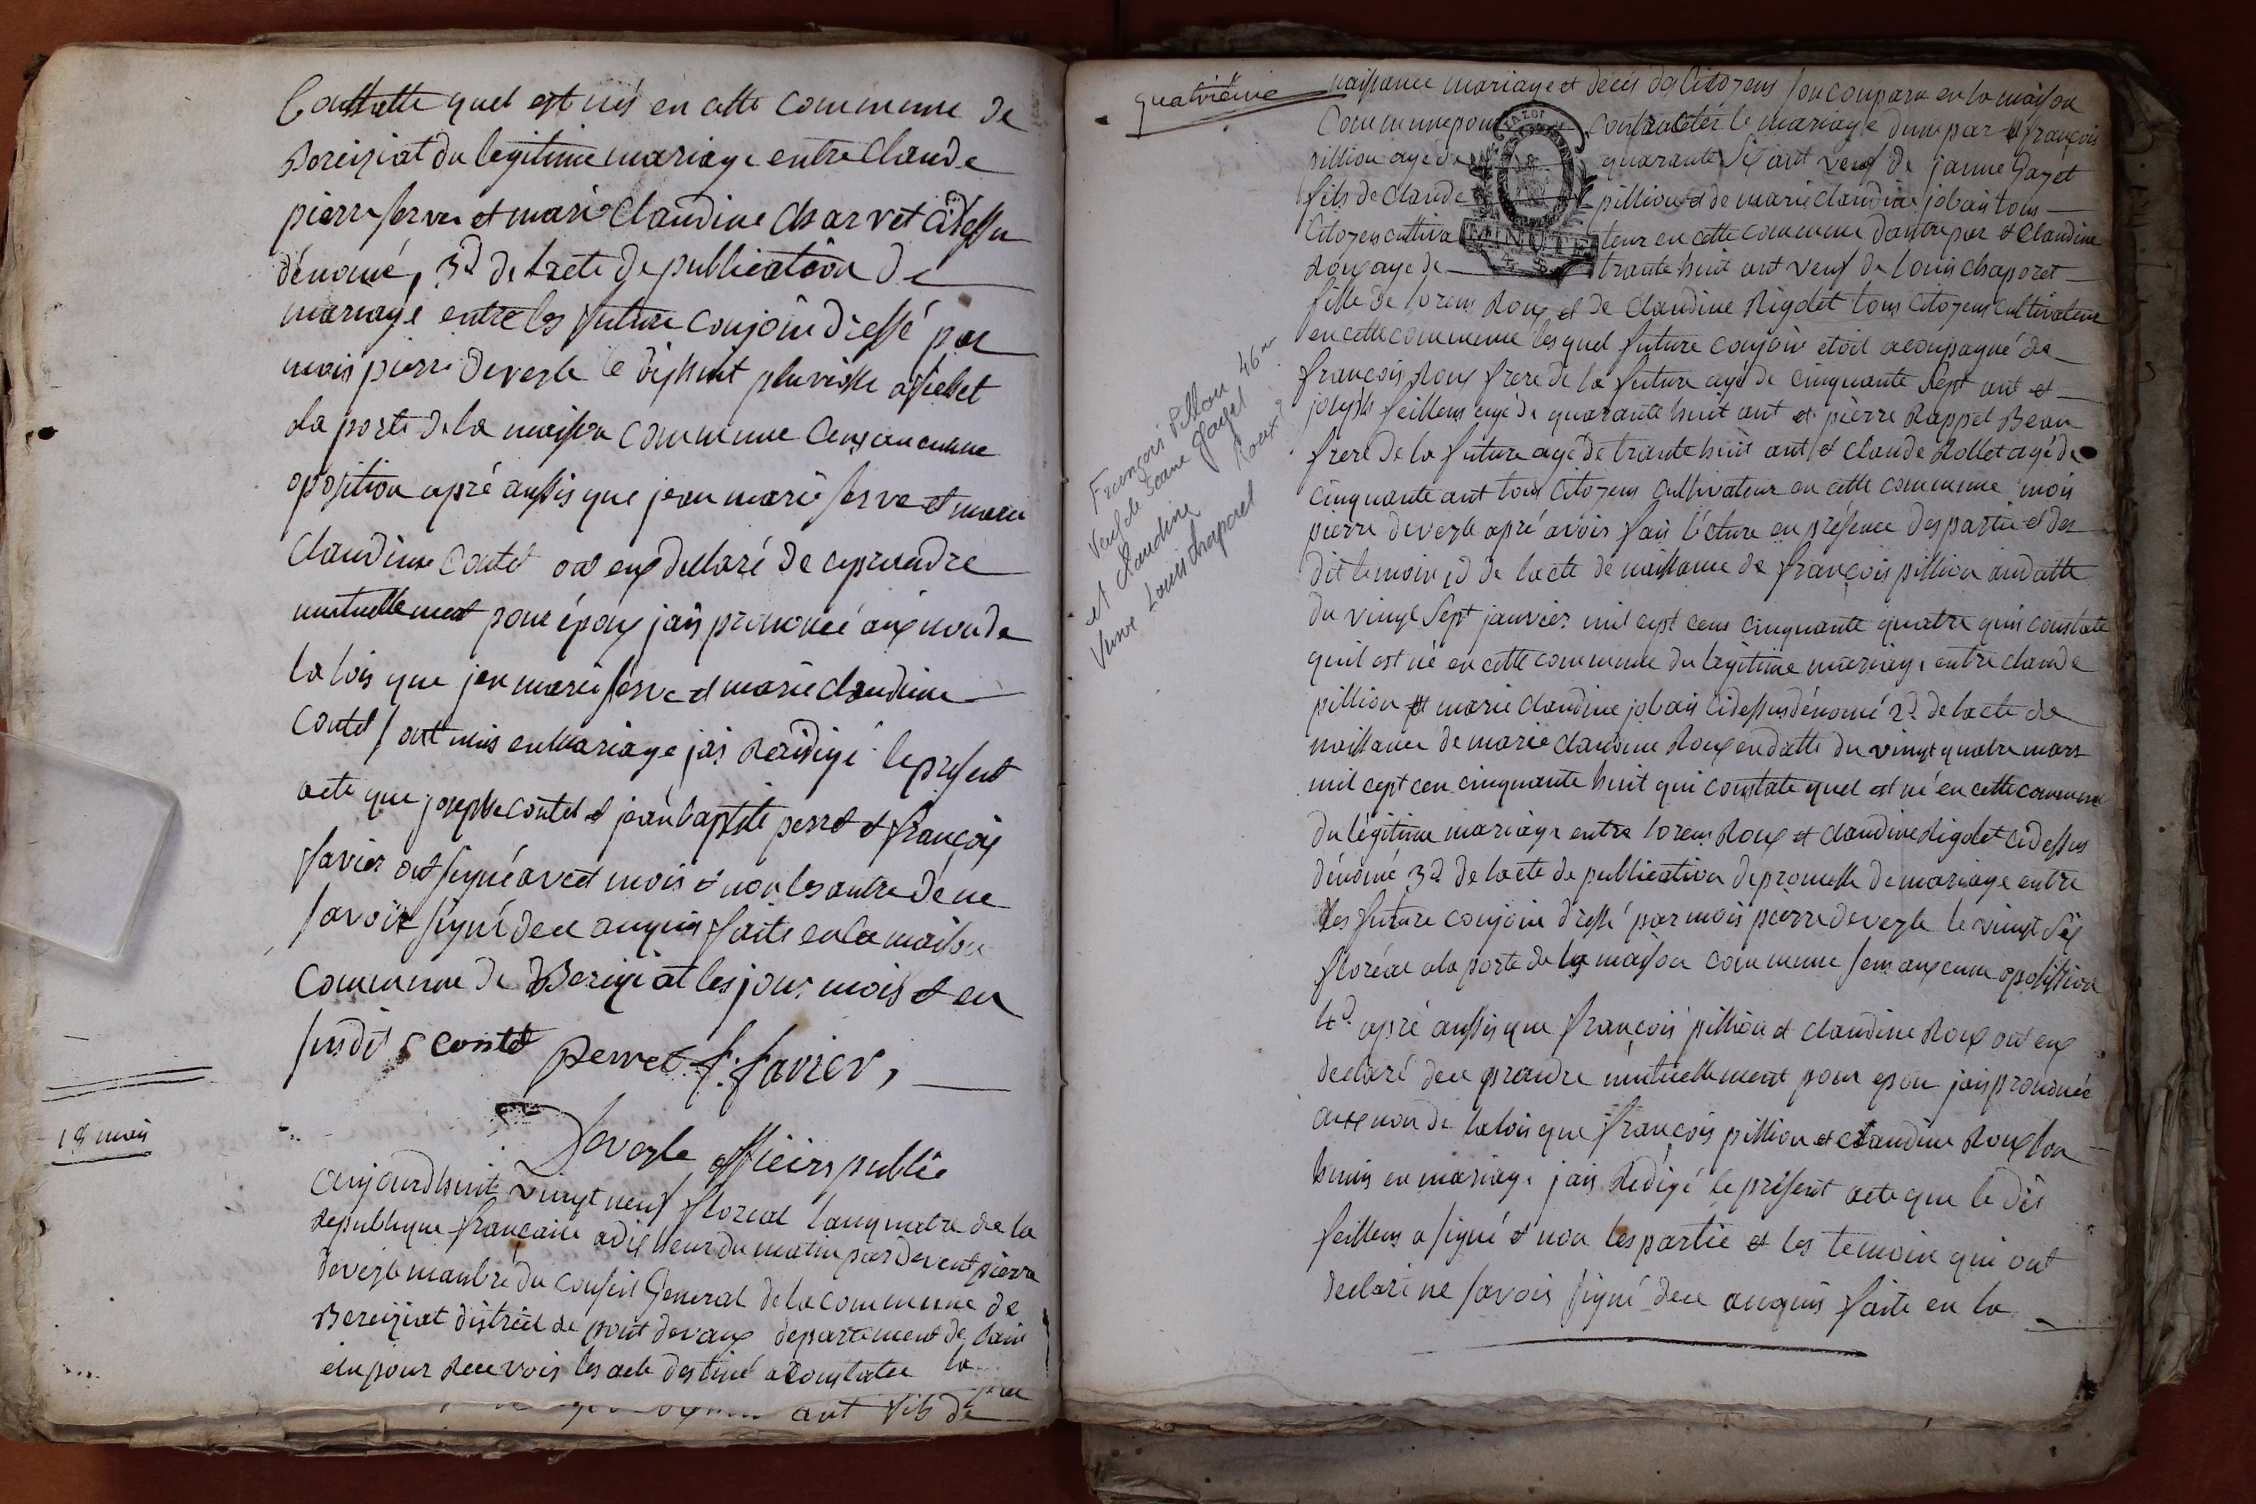 Constatte quel est nés en cette commune de
Bereiziat du legitime mariage entre Claude
pierre serve et marie Claudine Charvet cidessu
dénomé, 3d de lacte de publication de
mariage entre les future conjoin dressé par
mois pierre devegle le dishuit pluviosse affichet
ala porte de la maison commune sens aucunne
oposition apré aussis que jean marie serve et marie
Claudine Contet ont eux declaré de ce prendre
mutuellement pour époux jais prononcé aux non de
la lois que jen marie serve et marie claudine
Contet sont unis en mariage jais Raidigé le present
acte que josephe contet et jean baptiste perret et françois
favier ont signé avect mois et non les autre de ne
savoir signé dece anquis faite en la maison
Commune de Bereiziat les jour mois et en
susdit contet perret f. favier,
Devegle officiers public
18 mai
aujourdhuit vingt neuf floreal lanquatre de la
Republique francaise a dix heur du matin par devent pierre
devegle manbre du conseil General de la commune de
Bereiziat distriet de pont devaux departement de lain
elu pour Recevois les acte destiné a constater la
ant fils de
quatriéme
naissance mariage et decés des Citoyens son conparu en la maison
Commune pour contracter le mariage dune par françois
pillion agé de quarante six ant veuf de janne Gayet
fils de Claude pillion et de marie claudine jobais tous
Citoyens cultiva teur en cette commune dautre par et Claudine
Roux agé de trante huit ant veuf de louis chaporet
fille de lorens Roux et de Claudine Rigolet tous Citoyens cultivateur
en cette commune lesquel future conjoin etoit aconpagné de
françois Roux frere de la future agé de cinquante sept ant et
joseph feillens agé de quarante huit ant et pierre Rappet Beau
frere de la future agé de trante huit ant et claude Rollet agé de
cinquante ant tous Citoyens cultivateur en cette commune mois
pierre devegle apré avois fais lécture en présence des partie et des
dit temoin 1d de lacte de naissance de françois pillion aindatte
du vingt sept janvier mil cept cens cinquante quatre quis constate
quil est né en cette commune du legitime mariage entre claude
pillion et marie claudine jobais cidessus dénomé 2d de lacte de
naissance de marie claudine Roux en datte du vingt quatre mars
mil cept cen cinquante huit qui constate quel est né en cette commune
du légitime mariage entre lorens Roux et claudine Rigolet cidessus
dénomé 3d de lacte de publication de promesse de mariage entre
les future conjoin dressé par mois pierre devegle le vingt six
floréal ala porte de la maison commune sens aucune oposition
4d apré aussis que françois pillion et claudine Roux ont eux
declaré dece prandre mutuellement pour epou jais prononcé
aux non de la lois que françois pillion et claudine Roux son
hunis en mariage jais Redigé le présent acte que le dit
feillens a signé et non les partie et les temoin qui ont
declaré ne savois signé dece anquis faite en la
François Pillon 46 an
Veuf de Jeanne Gayet
et Claudine Roux
Veuve Louis Chaporet
MINUTE